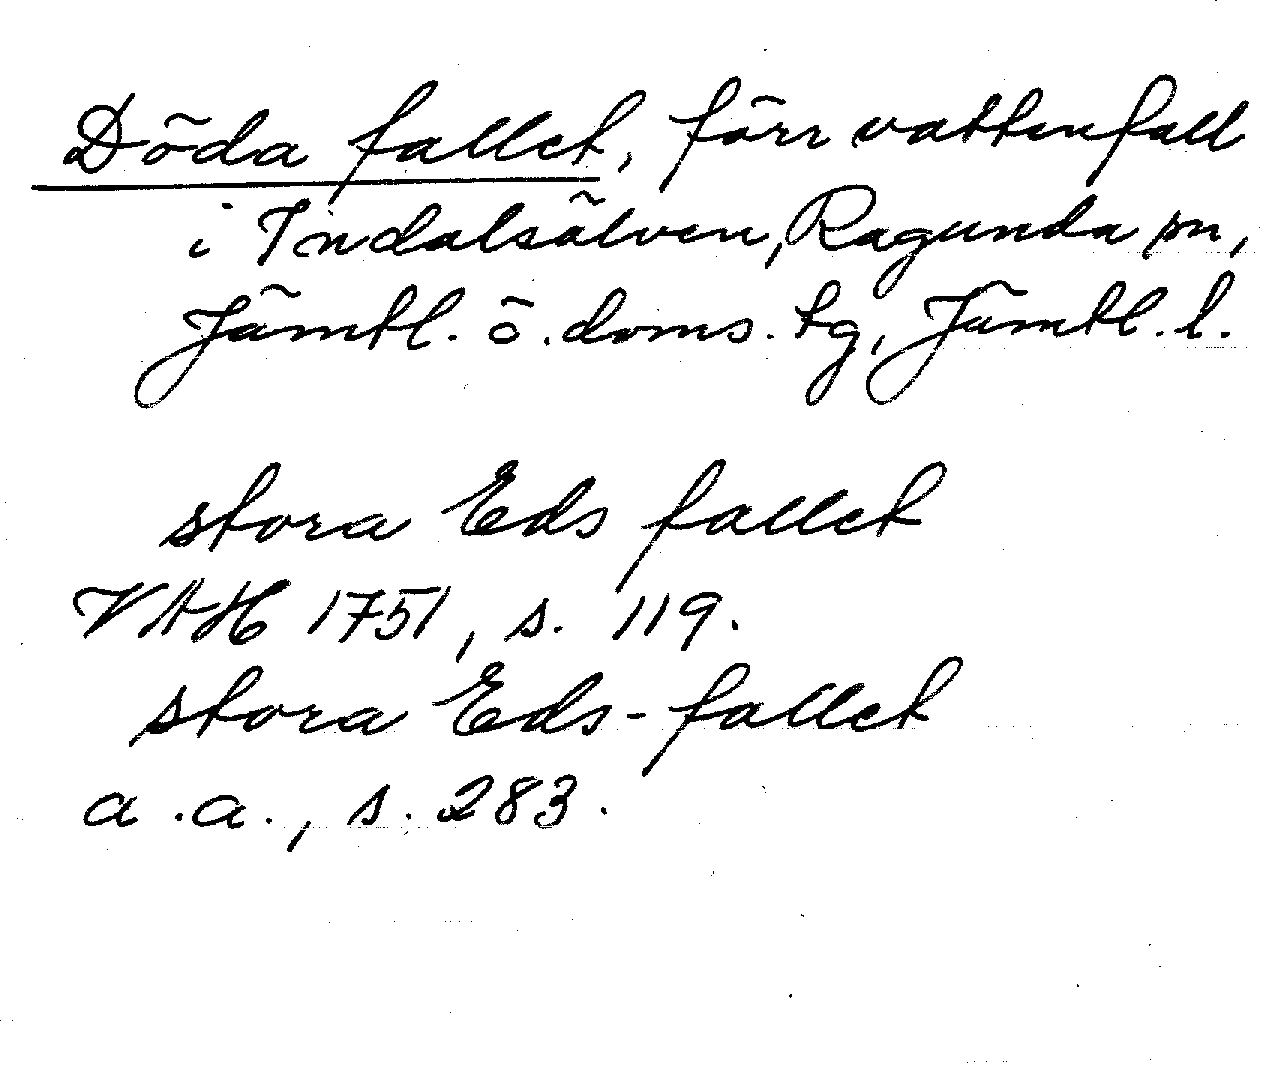 Döda fallet, förr vattenfall
i Indalsälven, Ragunda sn,
Jämtl. ö. doms. tg, Jämtl. l.
stora Eds fallet
VAH 1751, s. 119.
stora Eds-fallet
a.a., s. 283.